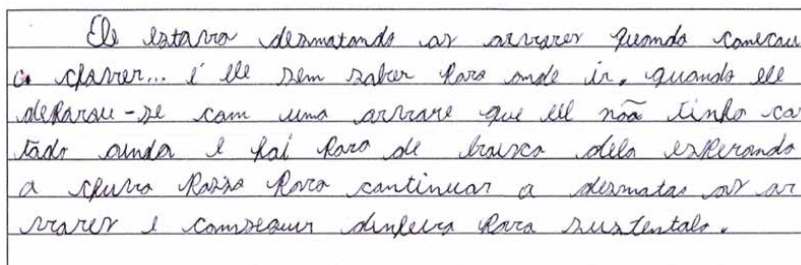 Ele estava desmatando as arvores quando comecou
a chover... e ele sem saber para onde ir. quando ele
deparou-se com uma arvore que ele não tinha cor
tado ainda e foi para de baixo dela esperando
a chuva passa para continuar a desmatar as ar
vores e conseguir dinheiro para sustentalo.